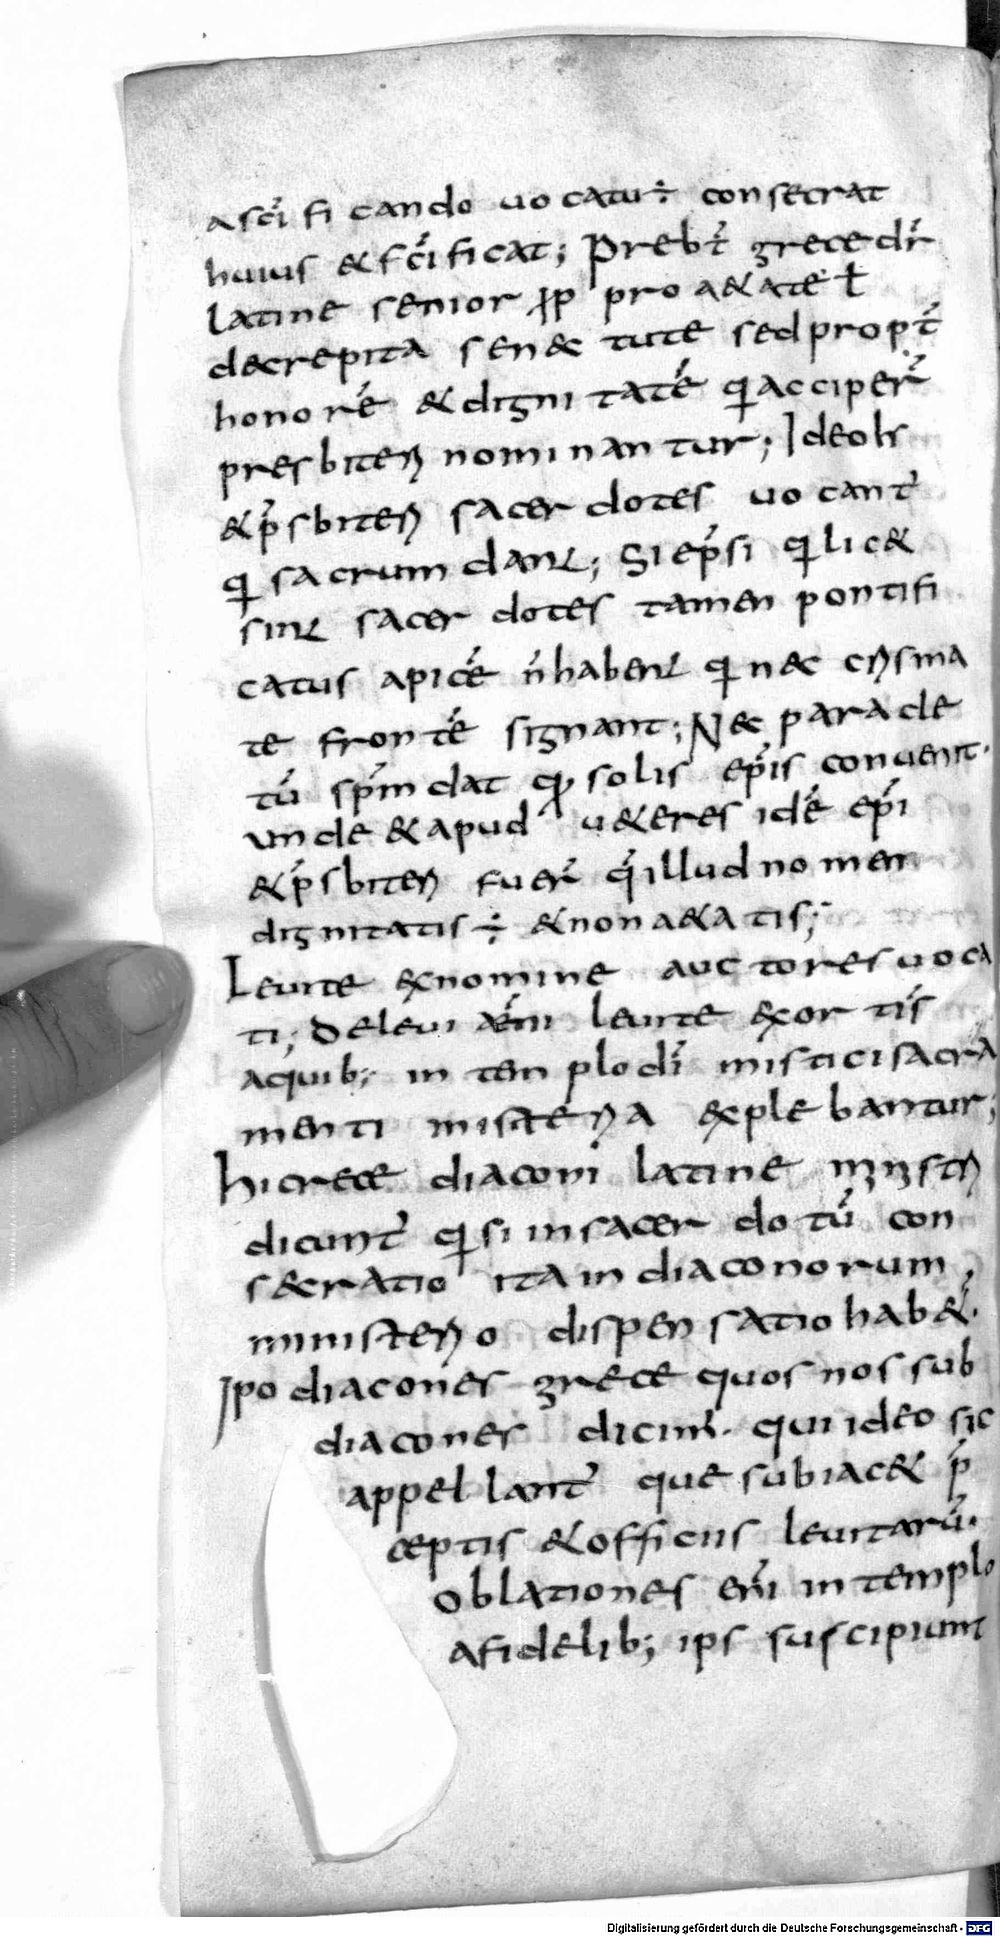 a sc̄i fi cando uo catur̄ consecrat
huius & sc̄ificat; Prebt̄ grece dr̄
latine senior ꝓp pro a&ate ł
decrepita senec tute sed propt̄
honorē & dignitatē q̄ acciper̄
presbiteri nominan tur; Ideo hi
& p̄sbiteri sacer dotes uo cant̄
q̄ sacrum dant; Si ep̄si q̄ lic&
sint sacer dotes tamen pontifi
catus apicē n̄ habent q̄ nec crisma
te frontē signant; Nec paracle
tū sp̄m dat qđ solis ep̄is conuenit.
unde & apud u&eres idē ep̄i
& p̄sbiteri fuer̄ q̄ illud nomen
dignitatis ÷ & non a&a tis;
Leuite ex nomine auc tores uoca
ti; De leui en̄i leuite exor tis
a quib; in tem plo dī mistici sacra
menti misteria exple bantur;
hi crece diaconi latine mnstri
dicunt̄ q̄ si in sacer do tū con
s&cratio ita in diaconorum
ministerio dispen satio hab&̄.
Ipo diacones grece quos nos sub
diacones dicim̄. qui ideo sic
appel lant̄ que subiac& p̄
ceptis & officiis leuitarū.
Oblationes en̄i in templo
a fidelib; ips suscipiunt
Digitalisierung gefördert durch die Deutsche Forschungsgemeinschaft - DFG